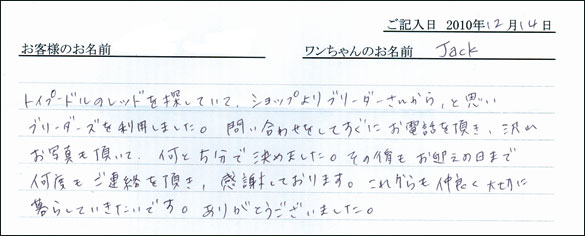 ご記入日 2010年12月14日
お客様のお名前 ワンちゃんのお名前 Jack
トイプードルのレッドを探していて、ショップよりブリーダーさんから、と思い
ブリーダーズを利用しました。問い合わせをしてすぐにお電話を頂き、沢山
お写真も頂いて、何と5分で決めました。その後もお迎えの日まで
何度もご連絡を頂き、感謝しております。これからも仲良く大切に
暮らしていきたいです。ありがとうございました。